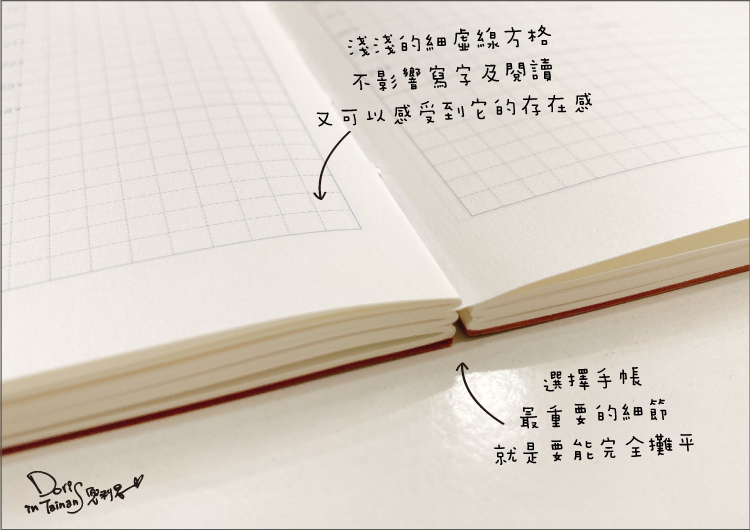 淺淺的細虛線方格
不影響寫字及閱讀
又可以感受到它的存在感
選擇手帳
最重要的細節
就是要能完全攤平
Doris
in Tainan